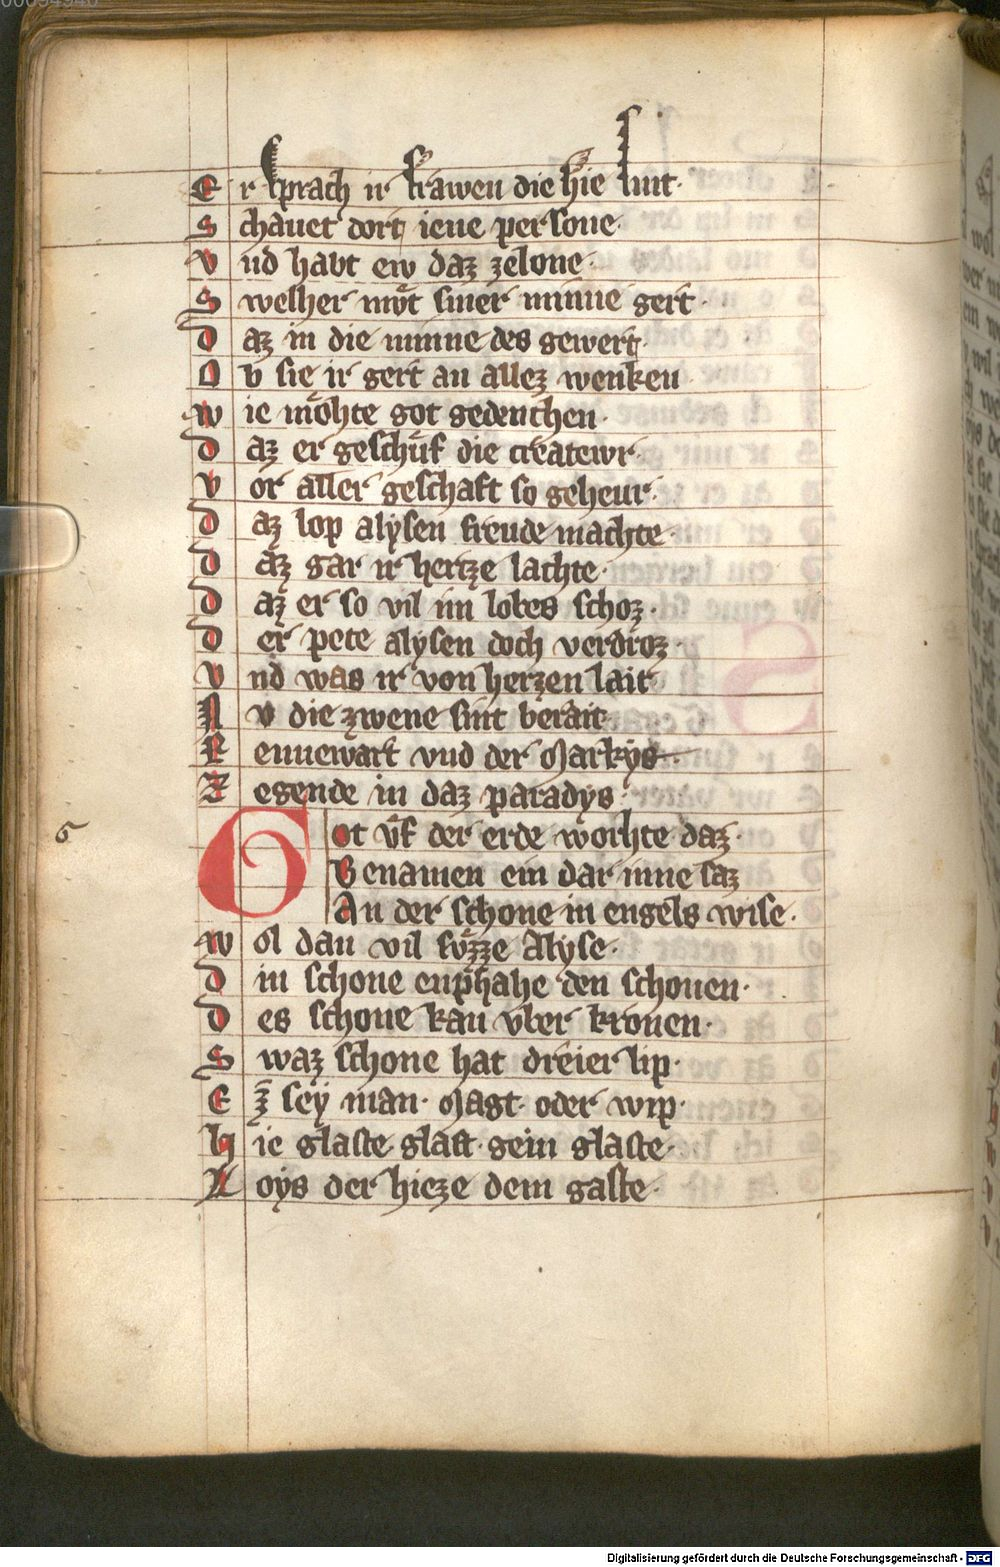 E r sprach ir frawen die hie sint·
S chauet dort iene persone·
V nd habt ew daz zelone·
S welher mvͦt siner minne gert·
D az in die minne des gewert·
O b sie ir gert an allez wenken
W ie moͤhte got gedenchen·
D az er geschuͤf die createwr·
V or aller geschaft so geheur·
D az lop alysen freude machte·
D az gar ir hertze lachte·
D az er so vil im lobes schoz·
D er pete alysen doch verdroz·
V nd was ir von herzen lait·
N v die zwene sint berait·
R ennewart vnd der Markys·
Z egende in daz paradys·
G ot vf der erde worhte daz·
Benamen ein dar inne saz
An der schone in engels wise·
W ol dan vil suͤzze Alyse·
D in schone enphahe den schonen·
D es schone kan vber kronen·
S waz schone hat dreier lip·
E z sey man· Magt· oder wip·
H ie glaste glast gein glaste·
L oys der hieze dem gaste·
Digitalisierung gefördert durch die Deutsche Forschungsgemeinschaft - DFG